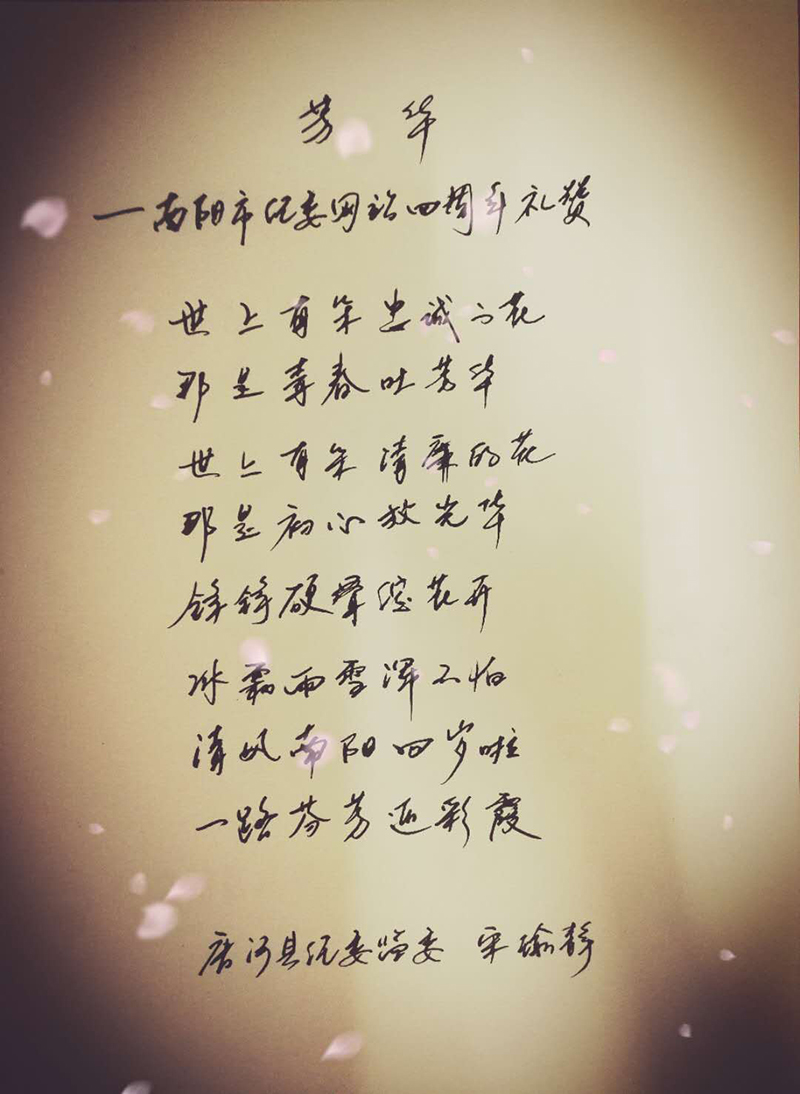 芳华
—南阳市纪委网站四周年礼赞
世上有朵忠诚的花
那是青春吐芳华
世上有朵清廉的花
那是初心放光华
锋锋硬骨绽花开
冰霜雨雪浑不怕
清风南阳四岁啦
一路芬芳迎彩霞
唐河县纪委监委 宋瑜静